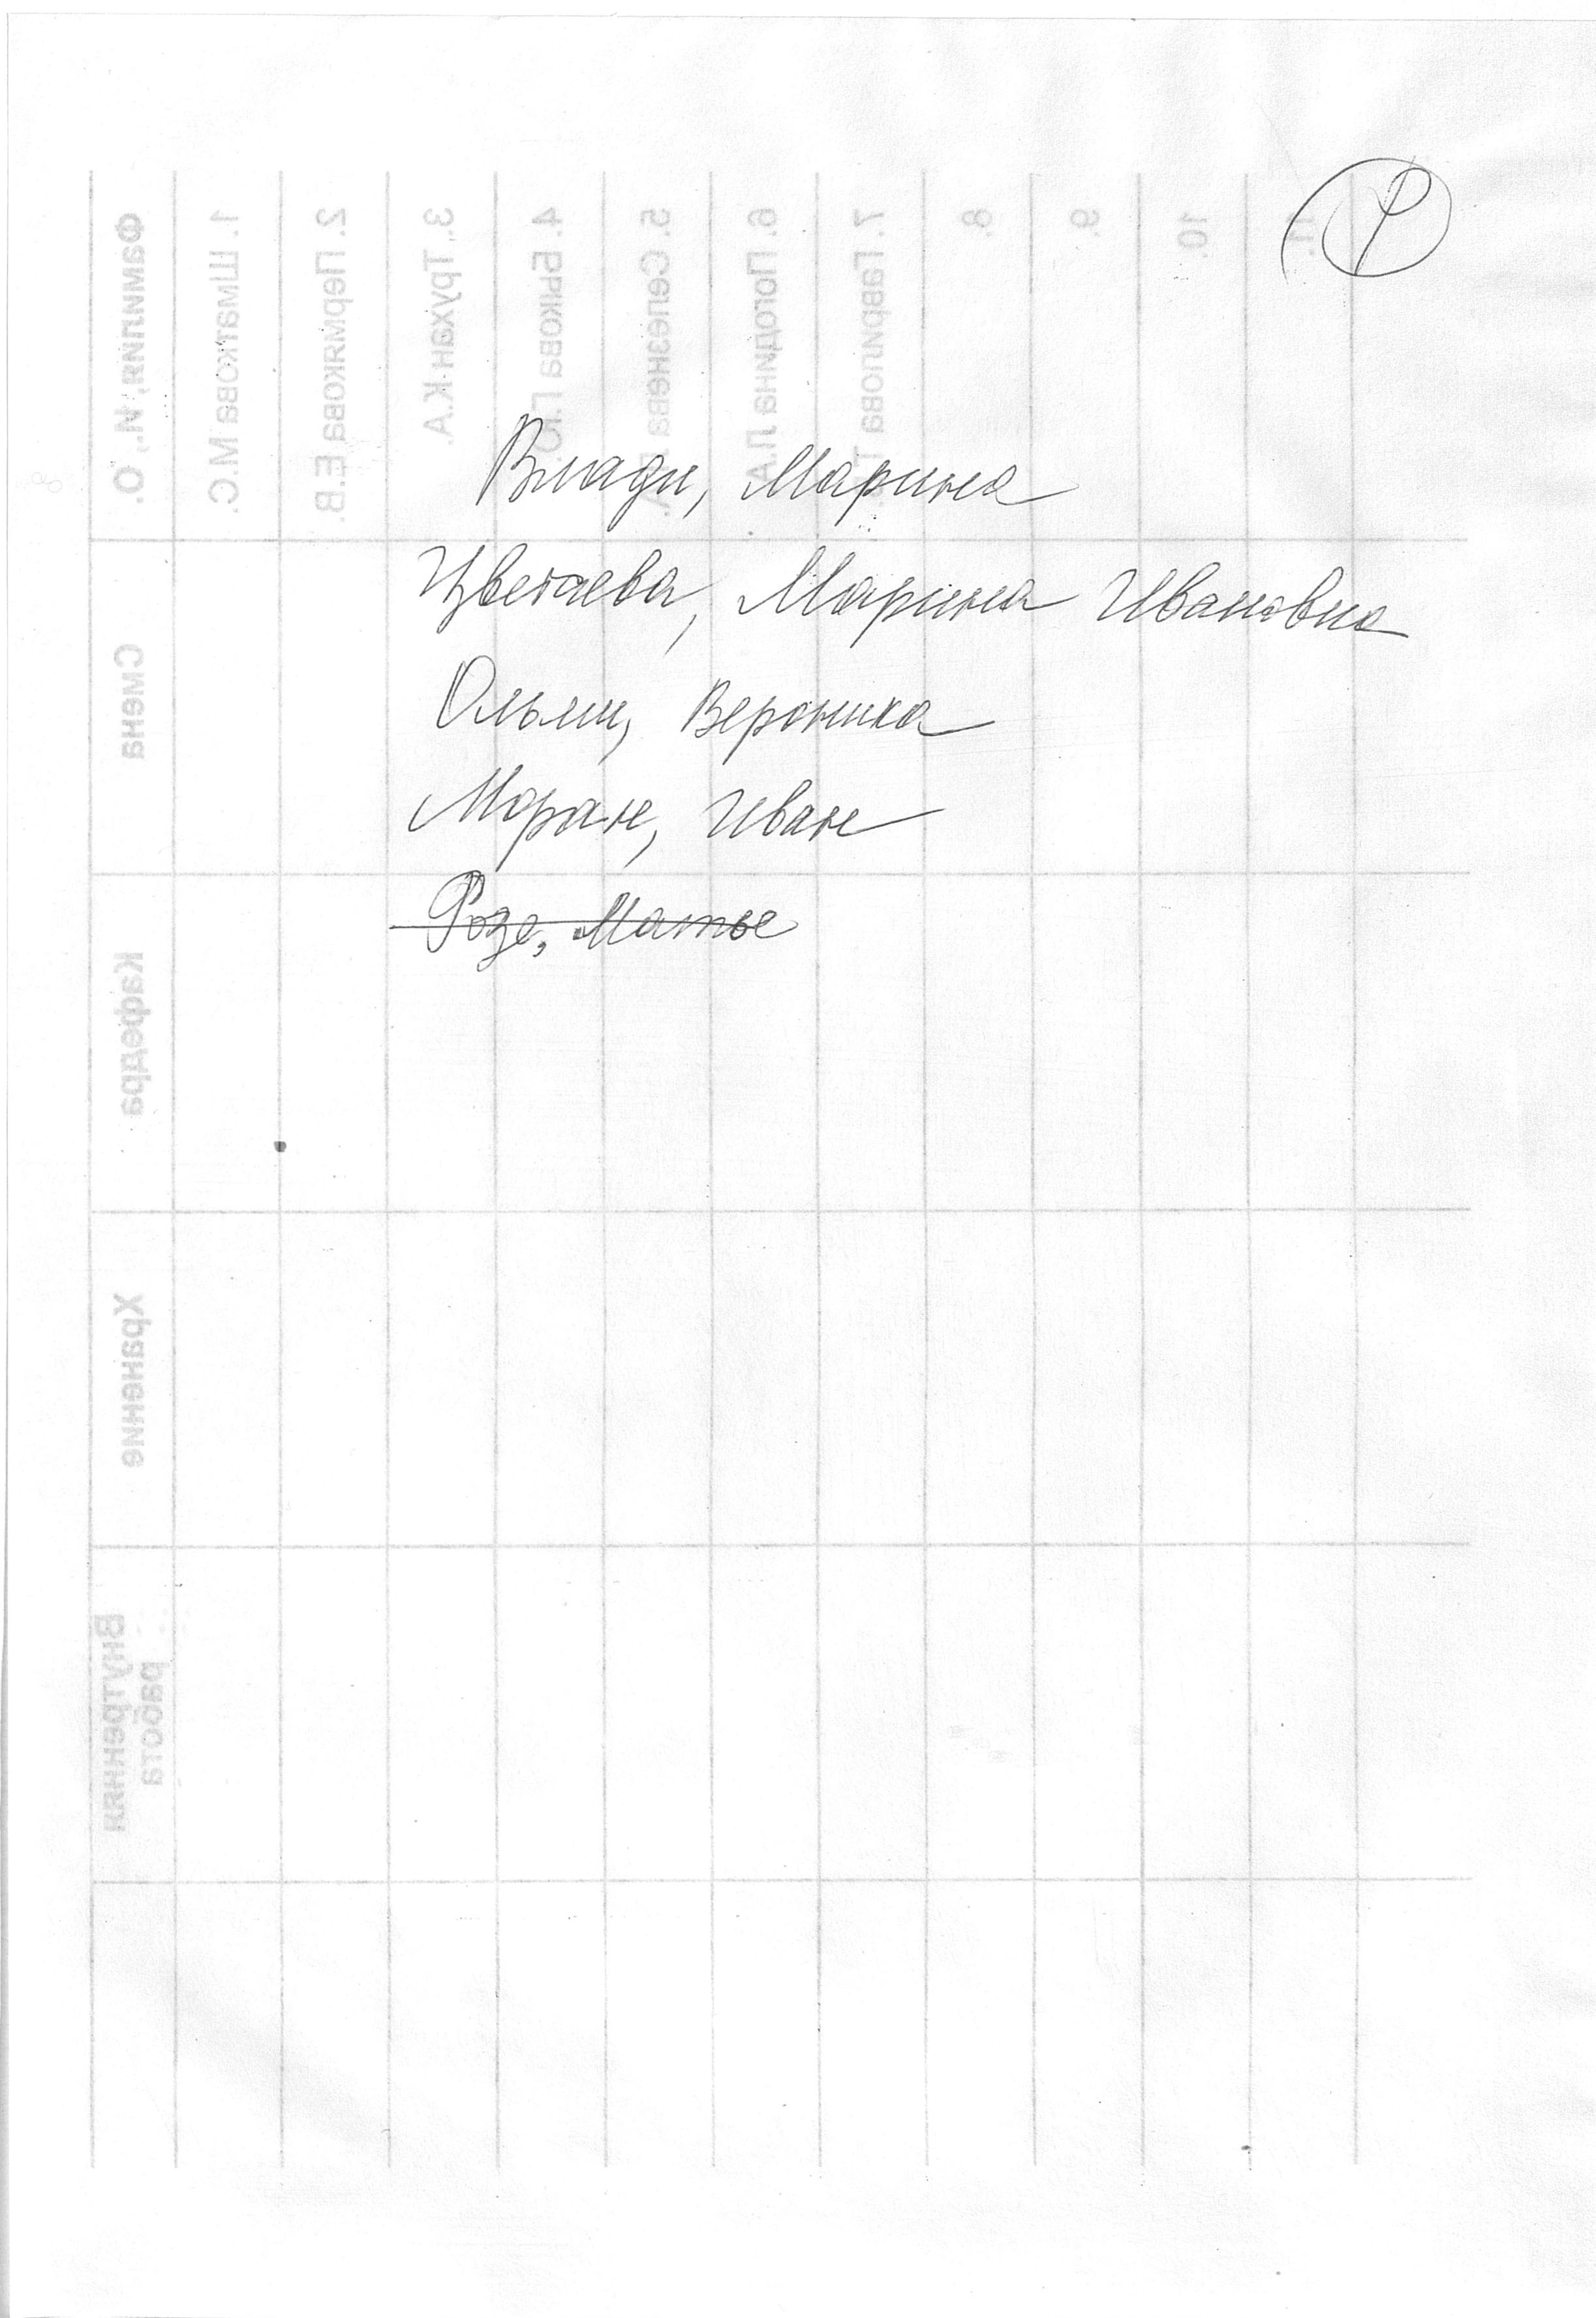 9
Влади, Марина
Цветаева, Марина Ивановна
Ольми, Вероника
Моран, Иван
Розе, Матье
Фамилия, И., О.
1. Шматкова М.С.
2. Пермякова Е.В.
3. Трухан К.А.
4. Быкова Г.Ю.
5. Селезнева
6. Погодина Л.А.
7. Гаврилова Т.
8.
9.
10.
11.
Смена
Кафедра
Хранение
Внутренняя
работа